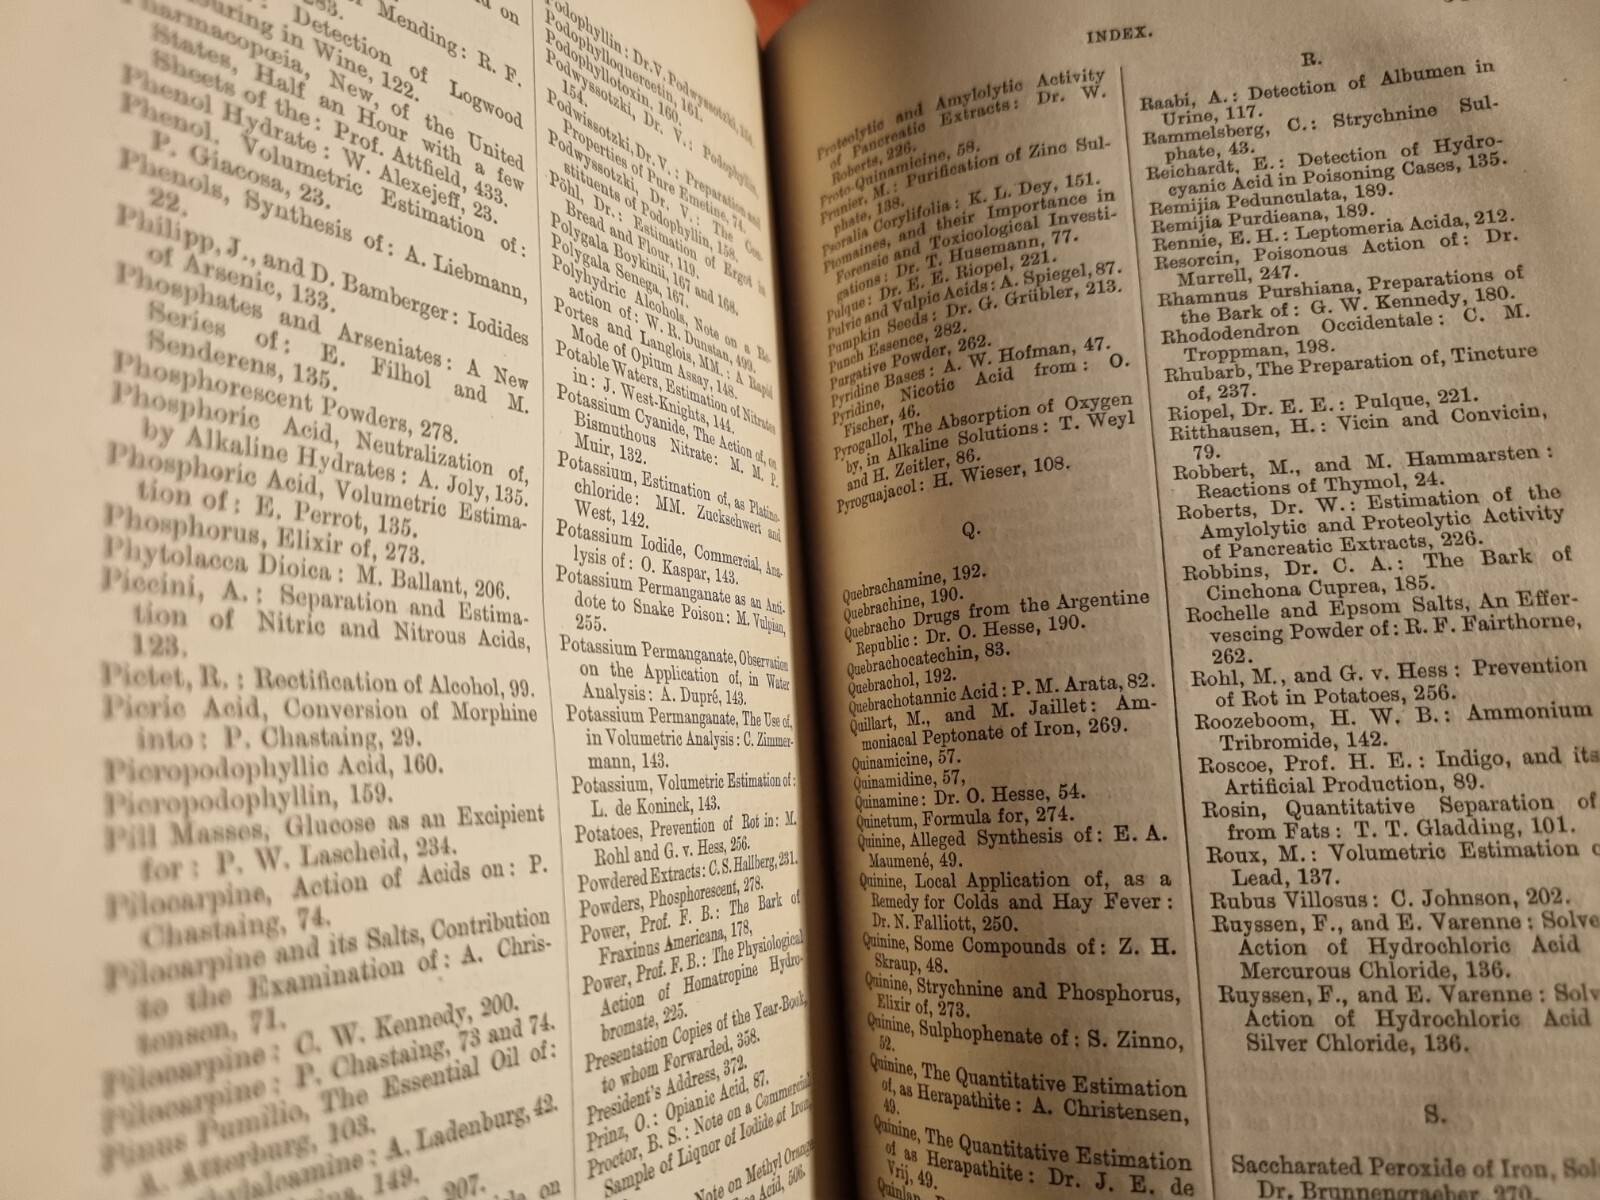 283.
Mending: R. F.
Detection of Logwood
Colouring in Wine, 122.
Pharmacopœia, New, of the United
States, Half an Hour with a few
Sheets of the: Prof. Attfield, 433.
Phenol Hydrate: W. Alexejeff, 23.
Phenol, Volumetric Estimation of:
P. Giacosa, 23.
Phenols, Synthesis of: A. Liebmann,
22.
Philipp, J., and D. Bamberger: Iodides
of Arsenic, 133.
Phosphates and Arseniates: A New
Series of: E. Filhol and M.
Senderens, 135.
Phosphorescent Powders, 278.
Phosphoric Acid, Neutralization of,
by Alkaline Hydrates: A. Joly, 135.
Phosphoric Acid, Volumetric Estima-
tion of: E. Perrot, 135.
Phosphorus, Elixir of, 273.
Phytolacca Dioica: M. Ballant, 206.
Piccini, A.: Separation and Estima-
tion of Nitric and Nitrous Acids,
123.
Pictet, R.: Rectification of Alcohol, 99.
Picric Acid, Conversion of Morphine
into: P. Chastaing, 29.
Picropodophyllic Acid, 160.
Picropodophyllin, 159.
Pill Masses, Glucose as an Excipient
for: P. W. Lascheid, 234.
Pilocarpine, Action of Acids on: P.
Chastaing, 74.
Pilocarpine and its Salts, Contribution
to the Examination of: A. Chris-
tensen, 71.
Pilocarpine: C. W. Kennedy, 200.
Pilocarpine: P. Chastaing, 73 and 74.
Pinus Pumilio, The Essential Oil of:
A. Atterburg, 103.
A. Ladenburg, 42.
149.
207.
on
Podophyllin: Dr. V. Podwyssotzki, 154.
Podophylloquercetin, 161.
Podophyllotoxin, 160.
Podwyssotzki, Dr. V.: Podophyllin,
154.
Podwissotzki, Dr. V.: Preparation and
Properties of Pure Emetine, 74.
Podwyssotzki, Dr. V.: The Con-
stituents of Podophyllin, 158.
Pöhl, Dr.: Estimation of Ergot in
Bread and Flour, 119.
Polygala Boykinii, 167 and 168.
Polygala Senega, 167.
Polyhydric Alcohols, Note on a Re-
action of: W. R. Dunstan, 499.
Portes and Langlois, MM.: A Rapid
Mode of Opium Assay, 148.
Potable Waters, Estimation of Nitrates
in: J. West-Knights, 144.
Potassium Cyanide, The Action of, on
Bismuthous Nitrate: M. M. P.
Muir, 132.
Potassium, Estimation of, as Platino-
chloride: MM. Zuckschwert and
West, 142.
Potassium Iodide, Commercial, Ana-
lysis of: O. Kaspar, 143.
Potassium Permanganate as an Anti-
dote to Snake Poison: M. Vulpian,
255.
Potassium Permanganate, Observation
on the Application of, in Water
Analysis: A. Dupré, 143.
Potassium Permanganate, The Use of,
in Volumetric Analysis: C. Zimmer-
mann, 143.
Potassium, Volumetric Estimation of:
L. de Koninck, 143.
Potatoes, Prevention of Rot in: M.
Rohl and G. v. Hess, 256.
Powdered Extracts: C. S. Hallberg, 231.
Powders, Phosphorescent, 278.
Power, Prof. F. B.: The Bark of
Fraxinus Americana, 178,
Power, Prof. F. B.: The Physiological
Action of Homatropine Hydro-
bromate, 225.
Presentation Copies of the Year-Book,
to whom Forwarded, 358.
President's Address, 372.
Prinz, O.: Opianic Acid, 87.
Proctor, B. S.: Note on a Commercial
Sample of Liquor of Iodide of Iron,
Note on Methyl Orange
Acid, 506.
INDEX.
Proteolytic and Amylolytic Activity
of Pancreatic Extracts: Dr. W.
Roberts, 226.
Proto-Quinamicine, 58.
Prunier, M.: Purification of Zinc Sul-
phate, 138.
Psoralia Corylifolia: K. L. Dey, 151.
Ptomaines, and their Importance in
Forensic and Toxicological Investi-
gations: Dr. T. Husemann, 77.
Pulque: Dr. E. E. Riopel, 221.
Pulvic and Vulpic Acids: A. Spiegel, 87.
Pumpkin Seeds: Dr. G. Grübler, 213.
Punch Essence, 282.
Purgative Powder, 262.
Pyridine Bases: A. W. Hofman, 47.
Pyridine, Nicotic Acid from: O.
Fischer, 46.
Pyrogallol, The Absorption of Oxygen
by, in Alkaline Solutions: T. Weyl
and H. Zeitler, 86.
Pyroguajacol: H. Wieser, 108.
Q.
Quebrachamine, 192.
Quebrachine, 190.
Quebracho Drugs from the Argentine
Republic: Dr. O. Hesse, 190.
Quebrachocatechin, 83.
Quebrachol, 192.
Quebrachotannic Acid: P. M. Arata, 82.
Quillart, M., and M. Jaillet: Am-
moniacal Peptonate of Iron, 269.
Quinamicine, 57.
Quinamidine, 57,
Quinamine: Dr. O. Hesse, 54.
Quinetum, Formula for, 274.
Quinine, Alleged Synthesis of: E. A.
Maumené, 49.
Quinine, Local Application of, as a
Remedy for Colds and Hay Fever:
Dr. N. Falliott, 250.
Quinine, Some Compounds of: Z. H.
Skraup, 48.
Quinine, Strychnine and Phosphorus,
Elixir of, 273.
Quinine, Sulphophenate of: S. Zinno,
52.
Quinine, The Quantitative Estimation
of, as Herapathite: A. Christensen,
49.
Quinine, The Quantitative Estimation
of as Herapathite: Dr. J. E. de
Vrij, 49.
R.
Raabi, A.: Detection of Albumen in
Urine, 117.
Rammelsberg, C.: Strychnine Sul-
phate, 43.
Reichardt, E.: Detection of Hydro-
cyanic Acid in Poisoning Cases, 135.
Remijia Pedunculata, 189.
Remijia Purdieana, 189.
Rennie, E. H.: Leptomeria Acida, 212.
Resorcin, Poisonous Action of: Dr.
Murrell, 247.
Rhamnus Purshiana, Preparations of
the Bark of: G. W. Kennedy, 180.
Rhododendron Occidentale: C. M.
Troppman, 198.
Rhubarb, The Preparation of, Tincture
of, 237.
Riopel, Dr. E. E.: Pulque, 221.
Ritthausen, H.: Vicin and Convicin,
79.
Robbert, M., and M. Hammarsten:
Reactions of Thymol, 24.
Roberts, Dr. W.: Estimation of the
Amylolytic and Proteolytic Activity
of Pancreatic Extracts, 226.
Robbins, Dr. C. A.: The Bark of
Cinchona Cuprea, 185.
Rochelle and Epsom Salts, An Effer-
vescing Powder of: R. F. Fairthorne,
262.
Rohl, M., and G. v. Hess: Prevention
of Rot in Potatoes, 256.
Roozeboom, H. W. B.: Ammonium
Tribromide, 142.
Roscoe, Prof. H. E.: Indigo, and its
Artificial Production, 89.
Rosin, Quantitative Separation of
from Fats: T. T. Gladding, 101.
Roux, M.: Volumetric Estimation o
Lead, 137.
Rubus Villosus: C. Johnson, 202.
Ruyssen, F., and E. Varenne: Solve
Action of Hydrochloric Acid
Mercurous Chloride, 136.
Ruyssen, F., and E. Varenne: Solv
Action of Hydrochloric Acid
Silver Chloride, 136.
S.
Saccharated Peroxide of Iron, Sol
Dr. Brunnengraeber, 270